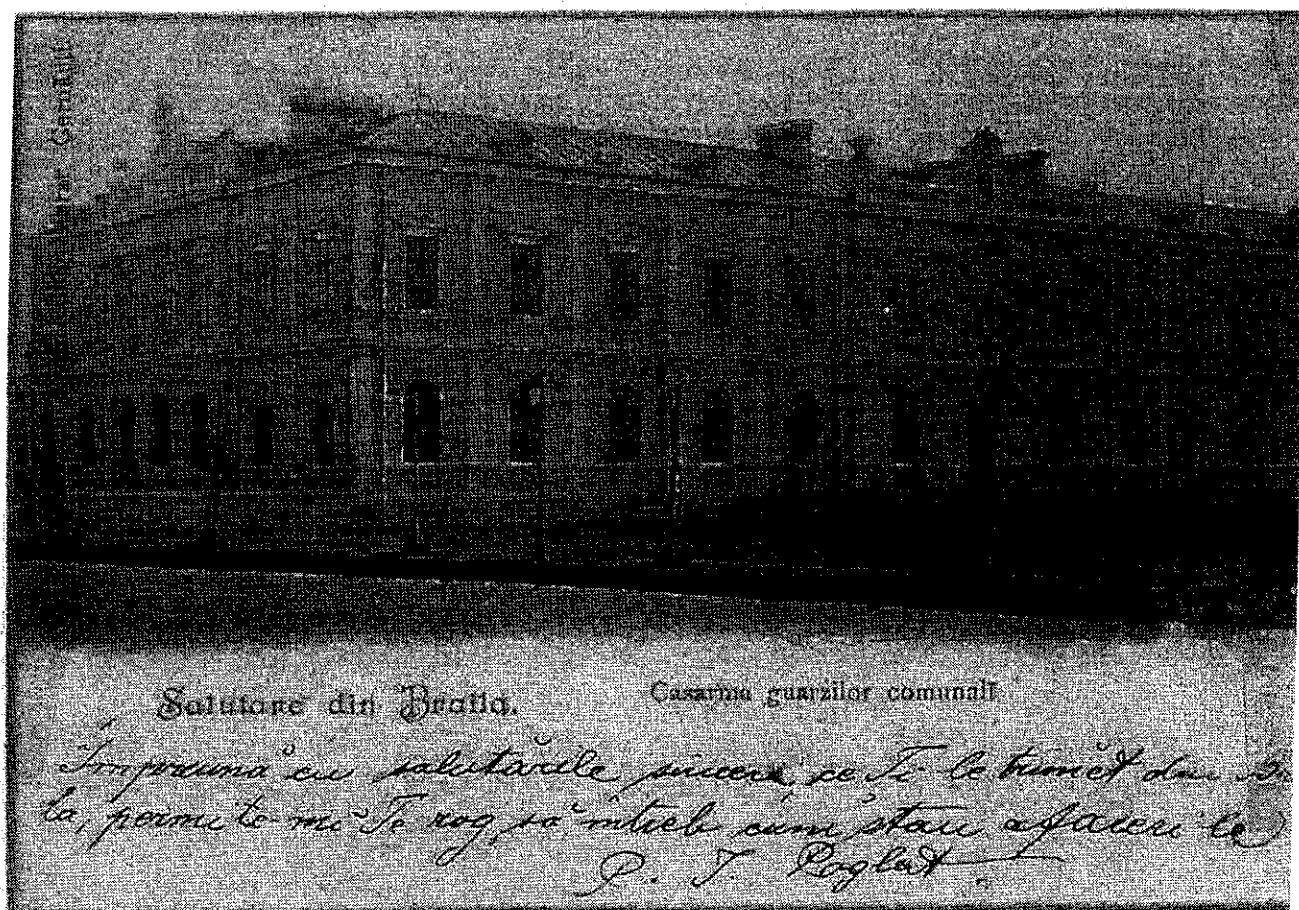 Salutare din Braila.
Casarma guarzilor comunalĭ
Împreună cu salutările sincere, ce Ți le trimet din
la, permite-mi Te rog, să întreb cum stau afacerile
P. J.